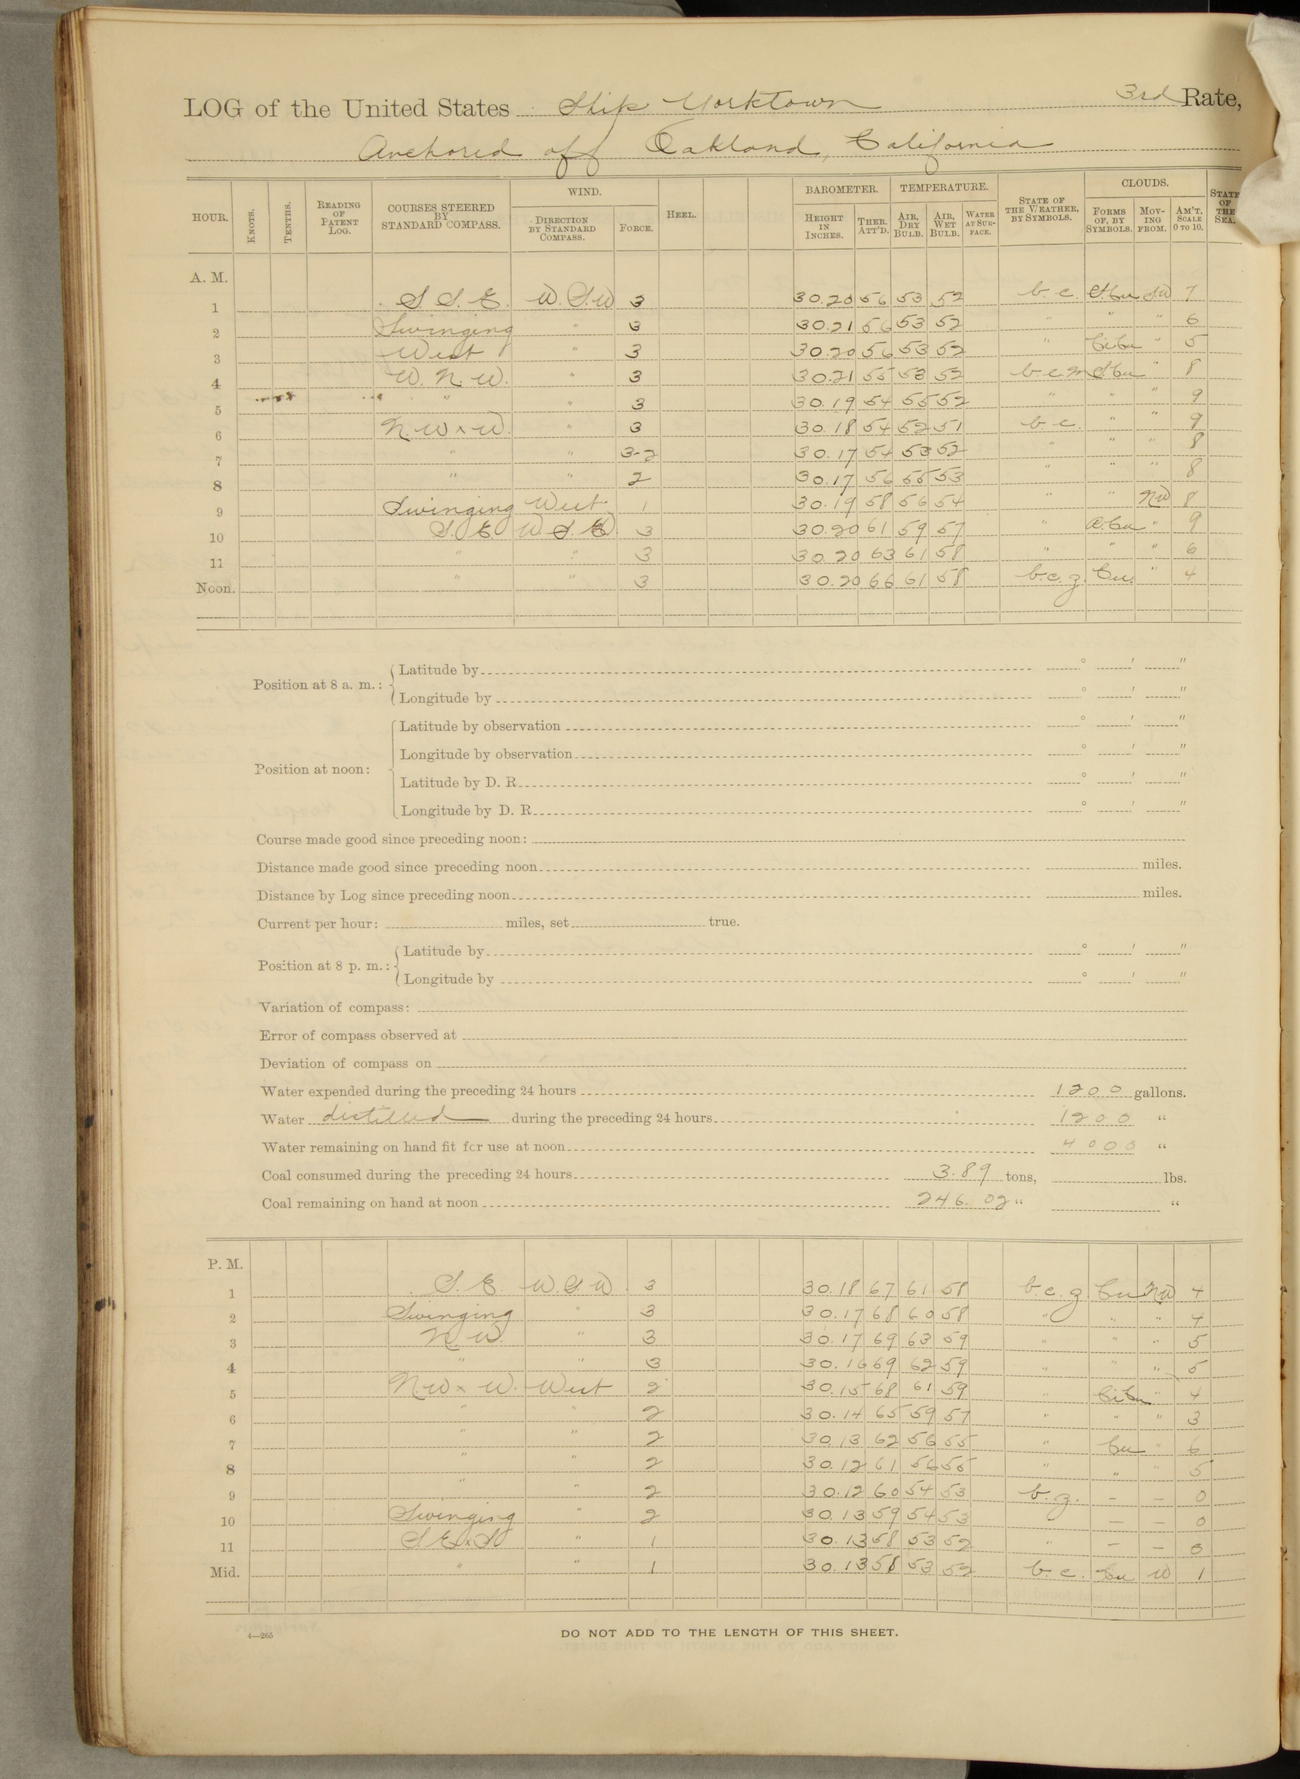 LOG of the United States Ship Yorktown 3rd Rate,
Anchored off Oakland, California
HOUR. KNOTS. TENTHS. READING OF PATENT LOG. COURSES STEERED BY STANDARD COMPASS. WIND. DIRECTION BY STANDARD COMPASS. FORCE. HEEL. BAROMETER. HEIGHT IN INCHES. THER. ATT'D. TEMPERATURE. AIR, DRY BULB. AIR, WET BULB. WATER AT SURFACE. STATE OF THE WEATHER, BY SYMBOLS. CLOUDS. FORMS OF, BY SYMBOLS. MOVING FROM. AM'T, SCALE 0 TO 10. STATE OF THE SEA.
A. M.
1 S S. E. W. S.W 3 30.20 56 53 52 b. c. S.Cu SW 7
2 Swinging " 3 30.21 56 53 52 " " " 6
3 West " 3 30.20 56 53 52 " Ci.Cu " 5
4 W. N. W. " 3 30.21 55 53 52 b c m S.Cu " 8
5 " " 3 30.19 54 55 52 " " " 9
6 N. W x W. " 3 30.18 54 52 51 b. c. " " 9
7 " " 3-2 30.17 54 53 52 " " " 8
8 " " 2 30.17 56 55 53 " " " 8
9 Swinging West 1 30.19 58 56 54 " " NW 8
10 S. E W. S. W 3 30.20 61 59 57 " A.Cu " 9
11 " " 3 30.20 63 61 58 " " " 6
Noon. " " 3 30.20 66 61 58 b. c. z. Cu. " 4
Position at 8 a. m.: Latitude by ° ' "
Longitude by ° ' "
Position at noon: Latitude by observation ° ' "
Longitude by observation ° ' "
Latitude by D. R. ° ' "
Longitude by D. R. ° ' "
Course made good since preceding noon:
Distance made good since preceding noon miles.
Distance by Log since preceding noon miles.
Current per hour: miles, set true.
Position at 8 p. m.: Latitude by ° ' "
Longitude by ° ' "
Variation of compass:
Error of compass observed at
Deviation of compass on
Water expended during the preceding 24 hours 1200 gallons.
Water distilled during the preceding 24 hours 1200 "
Water remaining on hand fit for use at noon 4000 "
Coal consumed during the preceding 24 hours 3.89 tons, lbs.
Coal remaining on hand at noon 246.02 " "
P. M.
1 S. E. W. S. W 3 30.18 67 61 58 b. c. z Cu NW 4
2 Swinging " 3 30.17 68 60 58 " " " 4
3 N. W. " 3 30.17 69 63 59 " " " 5
4 " " 3 30.16 69 62 59 " " " 5
5 N. W x W. West 2 30.15 68 61 59 " Ci.Cu " 4
6 " " 2 30.14 65 59 57 " " " 3
7 " " 2 30.13 62 56 55 " Cu " 6
8 " " 2 30.12 61 56 55 " " " 5
9 " " 2 30.12 60 54 53 b. z. — — 0
10 Swinging " 2 30.13 59 54 53 — — 0
11 S E x S " 1 30.13 58 53 52 " — — 0
Mid. " " 1 30.13 58 53 52 b. c. Cu W 1
4—265
DO NOT ADD TO THE LENGTH OF THIS SHEET.